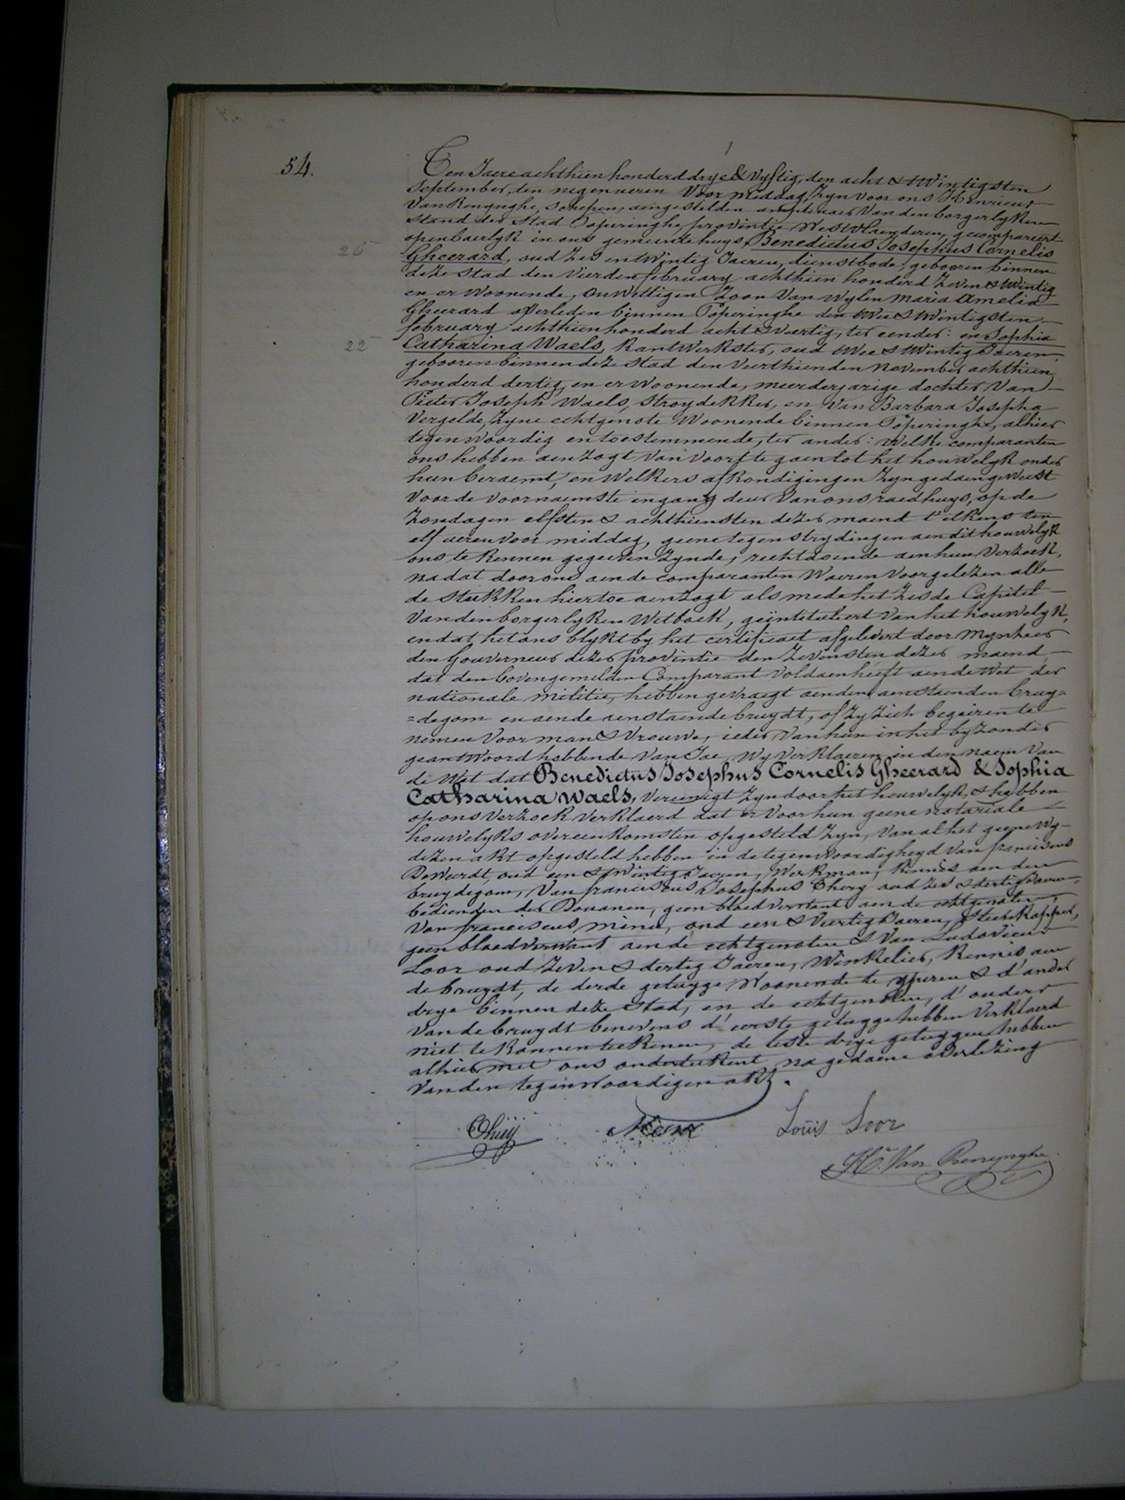 54.
Ten Jaere achthien honderd drye & Vyftig, den acht & twintigsten
September, ten negen ueren Voor middag, Zyn voor ons Henricus
Van Renynghe, schepen, aengestelden amptenaer Van den borgerlyken
stand der Stad Poperinghe, provintie Westvlaenderen, gecompareert
26 openbaerlyk in ons gemeentehuys, Benedictus Josephus Cornelis
Gheerard, oud Zes en twintig Jaeren, dienstbode, gebooren binnen
deze stad den Vierden february achthien honderd Zeven & twintig
en er Woonende, onwettigen Zoon Van Wylen Maria Amelia
Gheerard overleden binnen Poperinghe den twee & twintigsten
february achthienhonderd acht & veertig, ter eender: en Sophia
22 Catharina Waels, Kantwerkster, oud twee & twintig Jaeren
gebooren binnen deze stad den Veerthienden November achthien
honderd dertig, en er Woonende, meerderjarige dochter Van
Pieter Joseph Waels, Stroydekker, en Van Barbara Josepha
Vergelde, Zyne echtgenote Woonende binnen Poperinghe, alhier
tegenwoordig en toestemmende, ter ander: Welke comparanten
ons hebben aenzogt Van Voort te gaen tot het houwelyk onder
hun beraemt, en Welkers afkondigingen Zyn gedaen geweest
Voor de voornaemste ingang deur Van ons raedhuys, op de
Zondagen elfsten & achthiensten dezer maend t'elkens ten
elf ueren voor middag, geene tegenstrydingen aen dit houwelyk
ons te kennen gegeven Zynde; rechtdoende aen hun Verzoek,
na dat door ons aen de comparanten Waeren voorgelezen alle
de stukken hiertoe aenzogt als mede het Zesde Capitel
Van den borgerlyken Wetboek, geïntituleert Van het houwelyk,
en dat het ons blykt by het certificaet afgelevert door Mynheer
den Gouverneur dezer provintie den Zevensten dezer maend,
dat den bovengemelden Comparant Voldaen heeft aen de Wet der
nationale militie, hebben gevraegt aen den aenstaenden bruy=
=degom en aen de aenstaende bruydt, of Zy Zich begeiren te
nemen Voor man & Vrouwe, ieder Van hun in het byzonder
geantwoord hebbende Van Jae, Wy Verklaeren in den naem Van
de Wet dat Benedictus Josephus Cornelis Gheerard & Sophia
Catharina Waels, Vereenigt Zyn door het houwelyk, & hebben
op ons verzoek verklaerd dat er voor hun geene notariale
houwelyks overeenkomsten opgesteld Zyn, Van al het geene Wy
dezen akt opgesteld hebben in de tegenwoordigheyd Van franciscus
Deweerdt, oud een & twintig Jaeren, Werkman, Kennis aen den
bruydegom, Van franciscus Josephus Thery oud Zes & dertig Jaeren,
bedienden der Douanen, geen bloedverwant aen de echtgenoten,
Van franciscus mene, oud een & Veertig Jaeren, steenkapper,
geen bloedverwant aen de echtgenoten & Van Ludovicus
Loor oud Zeven & dertig Jaeren, Winkelier, Kennis aen
de bruydt, de derde getuyge, Woonende te yperen & d'ander
drye binnen deze stad, en de echtgenoten, d'ouders
Van de bruydt benevens d'eerste getuyge hebben Verklaerd
niet te konnen teekenen, de leste drye getuygen hebben
alhier met ons onderteekent, na gedaene overlezing
Van den tegenwoordigen akt.
Louis Loor
Hri Van Renynghe